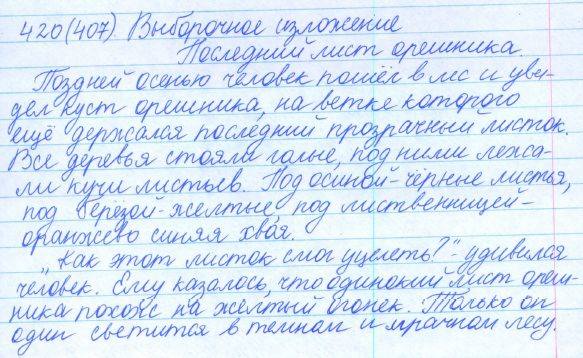 420(407) Выборочное изложение
Последний лист орешника.
Поздней осенью человек пошёл в лес и уви-
дел куст орешника, на ветке которого
ещё держался последний прозрачный листок.
Все деревья стояли голые, под ними лежа-
ли кучи листьев. Под осиной-чёрные листья,
под берёзой-желтые, под лиственницей-
оранжево синяя хвоя.
„Как этот листок смог уцелеть?"-удивился
человек. Ему казалось, что одинокий лист ореш-
ника похож на жёлтый огонек. Только он
один светится в темном и мрачном лесу.